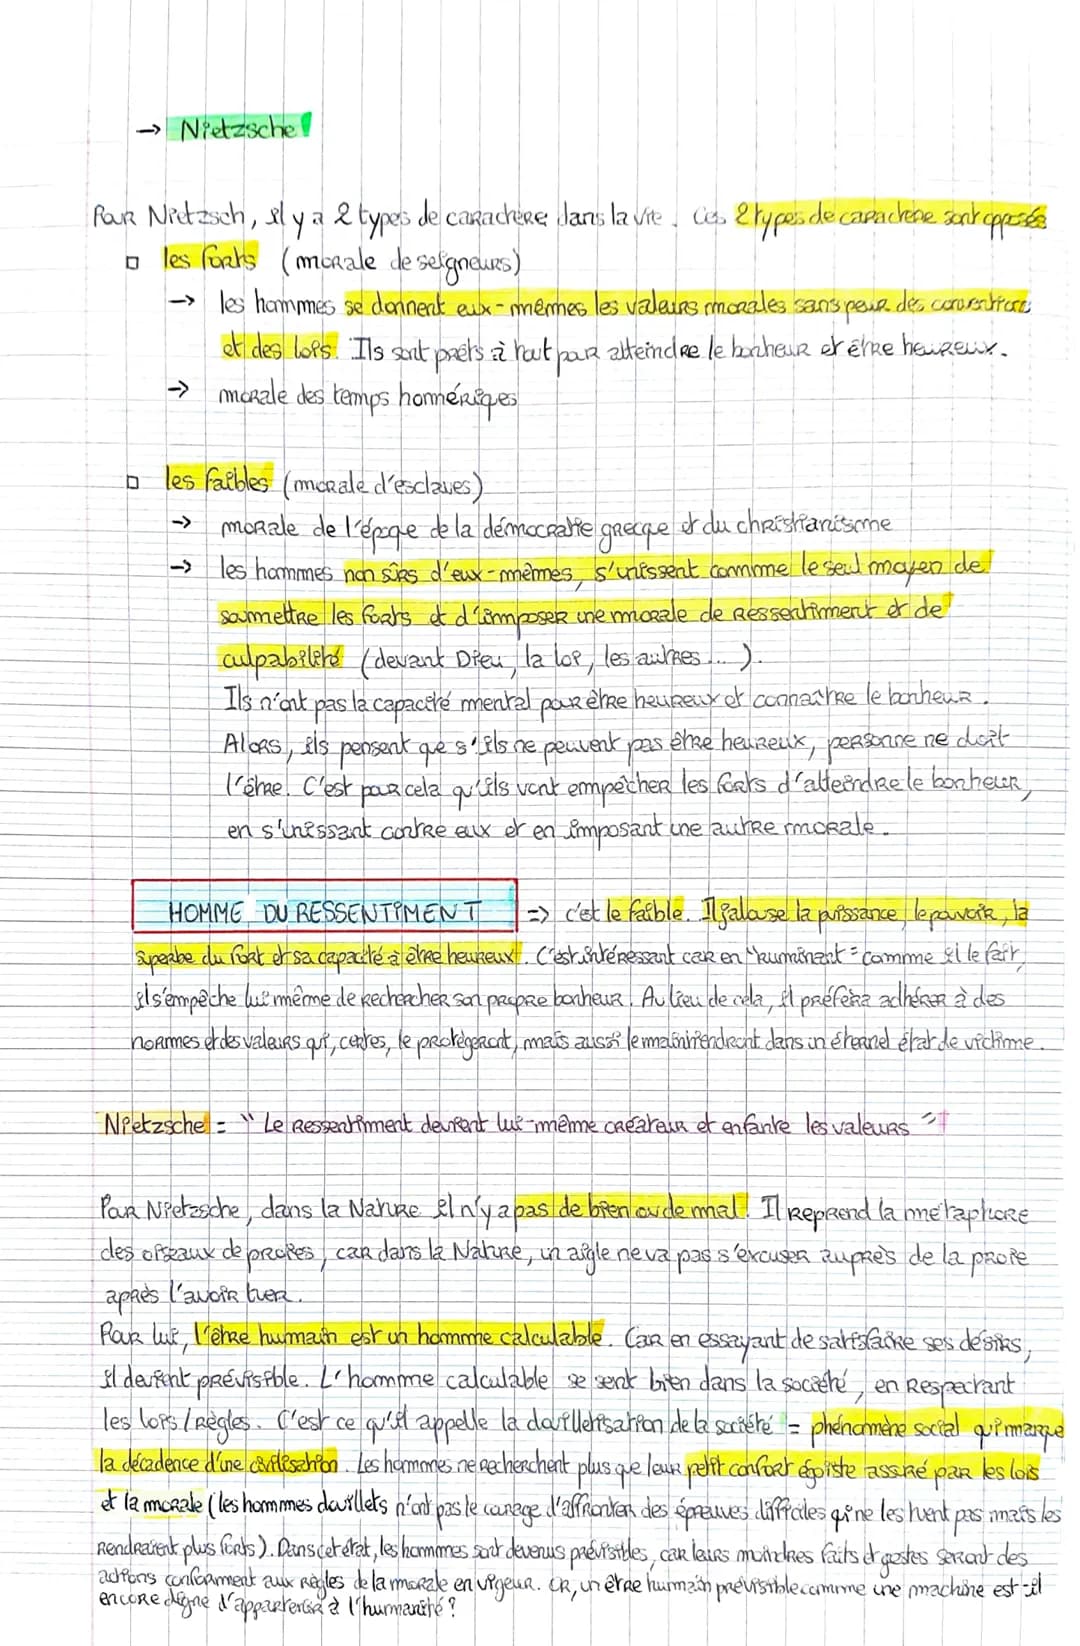 → Nietzsche
Pour Nietzsch, il y a 2 types de carachère dans la vie. Ces 2 types de carachère sont opposés
□ les forts (morale de seigneurs)
→ les hommes se donnent eux-mêmes les valeurs morales sans peur des conventions
et des lois. Ils sont prêts à tout pour atteindre le bonheur et être heureux.
→ morale des temps homériques
□ les faibles (morale d'esclaves)
→ morale de l'époque de la démocratie grecque et du christianisme
→ les hommes non sûrs d'eux-mêmes, s'unissent comme le seul moyen de
soumettre les forts et d'imposer une morale de ressentiment et de
culpabilité (devant Dieu, la loi, les autres ...).
Ils n'ont pas la capacité mental pour être heureux et connaithre le bonheur.
Alors, ils pensent que s'ils ne peuvent pas être heureux, personne ne doit
l'être. C'est pour cela qu'ils vont empêcher les forts d'atteindre le bonheur,
en s'unissant contre eux et en imposant une autre morale.
HOMME DU RESSENTIMENT => c'et le faible. Il jalouse la puissance, le pouvoir, la
superbe du fort et sa capacité à être heureux. C'est intéressant car en "ruminant" comme il le fait,
il s'empêche lui même de rechercher son propre bonheur. Au lieu de cela, il préfera adhérer à des
normes et des valeurs qui, certes, le protègeront, mais aussi le maintiendront dans un éternel état de victime.
Nietzsche = "Le ressentiment devient lui-même créateur et enfante les valeurs"
Pour Nietzsche, dans la Nature il n'y a pas de bien ou de mal. Il reprend la métaphore
des oiseaux de proies, car dans la Nature, un aigle ne va pas s'excuser auprès de la proie
après l'avoir tuer.
Pour lui, l'être humain est un homme calculable. Car en essayant de satisfaire ses désirs,
il devient prévisible. L'homme calculable se sent bien dans la société, en respectant
les lois/règles. C'est ce qu'il appelle la douilletisation de la société = phénomène social qui marque
la décadence d'une civilisation. Les hommes ne recherchent plus que leur petit confort égoïste assuré par les lois
et la morale (les hommes douillets n'ont pas le courage d'affronter des épreuves difficiles qi ne les tuent pas mais les
rendraient plus forts). Dans cet état, les hommes sont devenus prévisibles, car leurs moindres faits et gestes seront des
actions conformément aux règles de la morale en vigeur. Or, un être humain prévisible comme une machine est-il
encore digne d'appartenir à l'humanité?